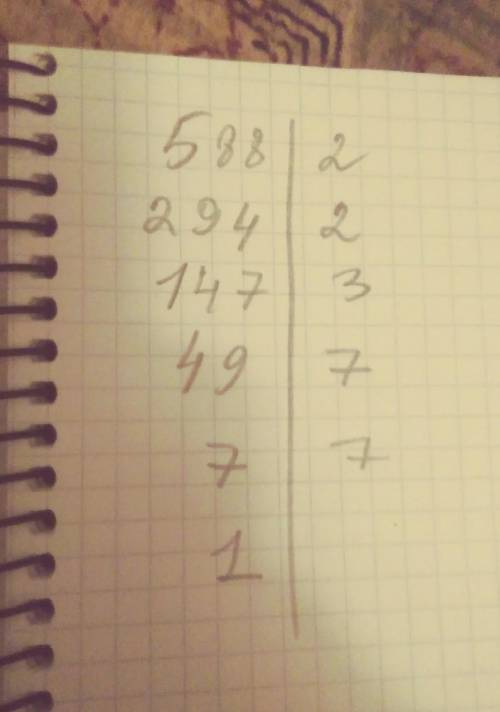 588 | 2
294 | 2
147 | 3
49 | 7
7 | 7
1 |